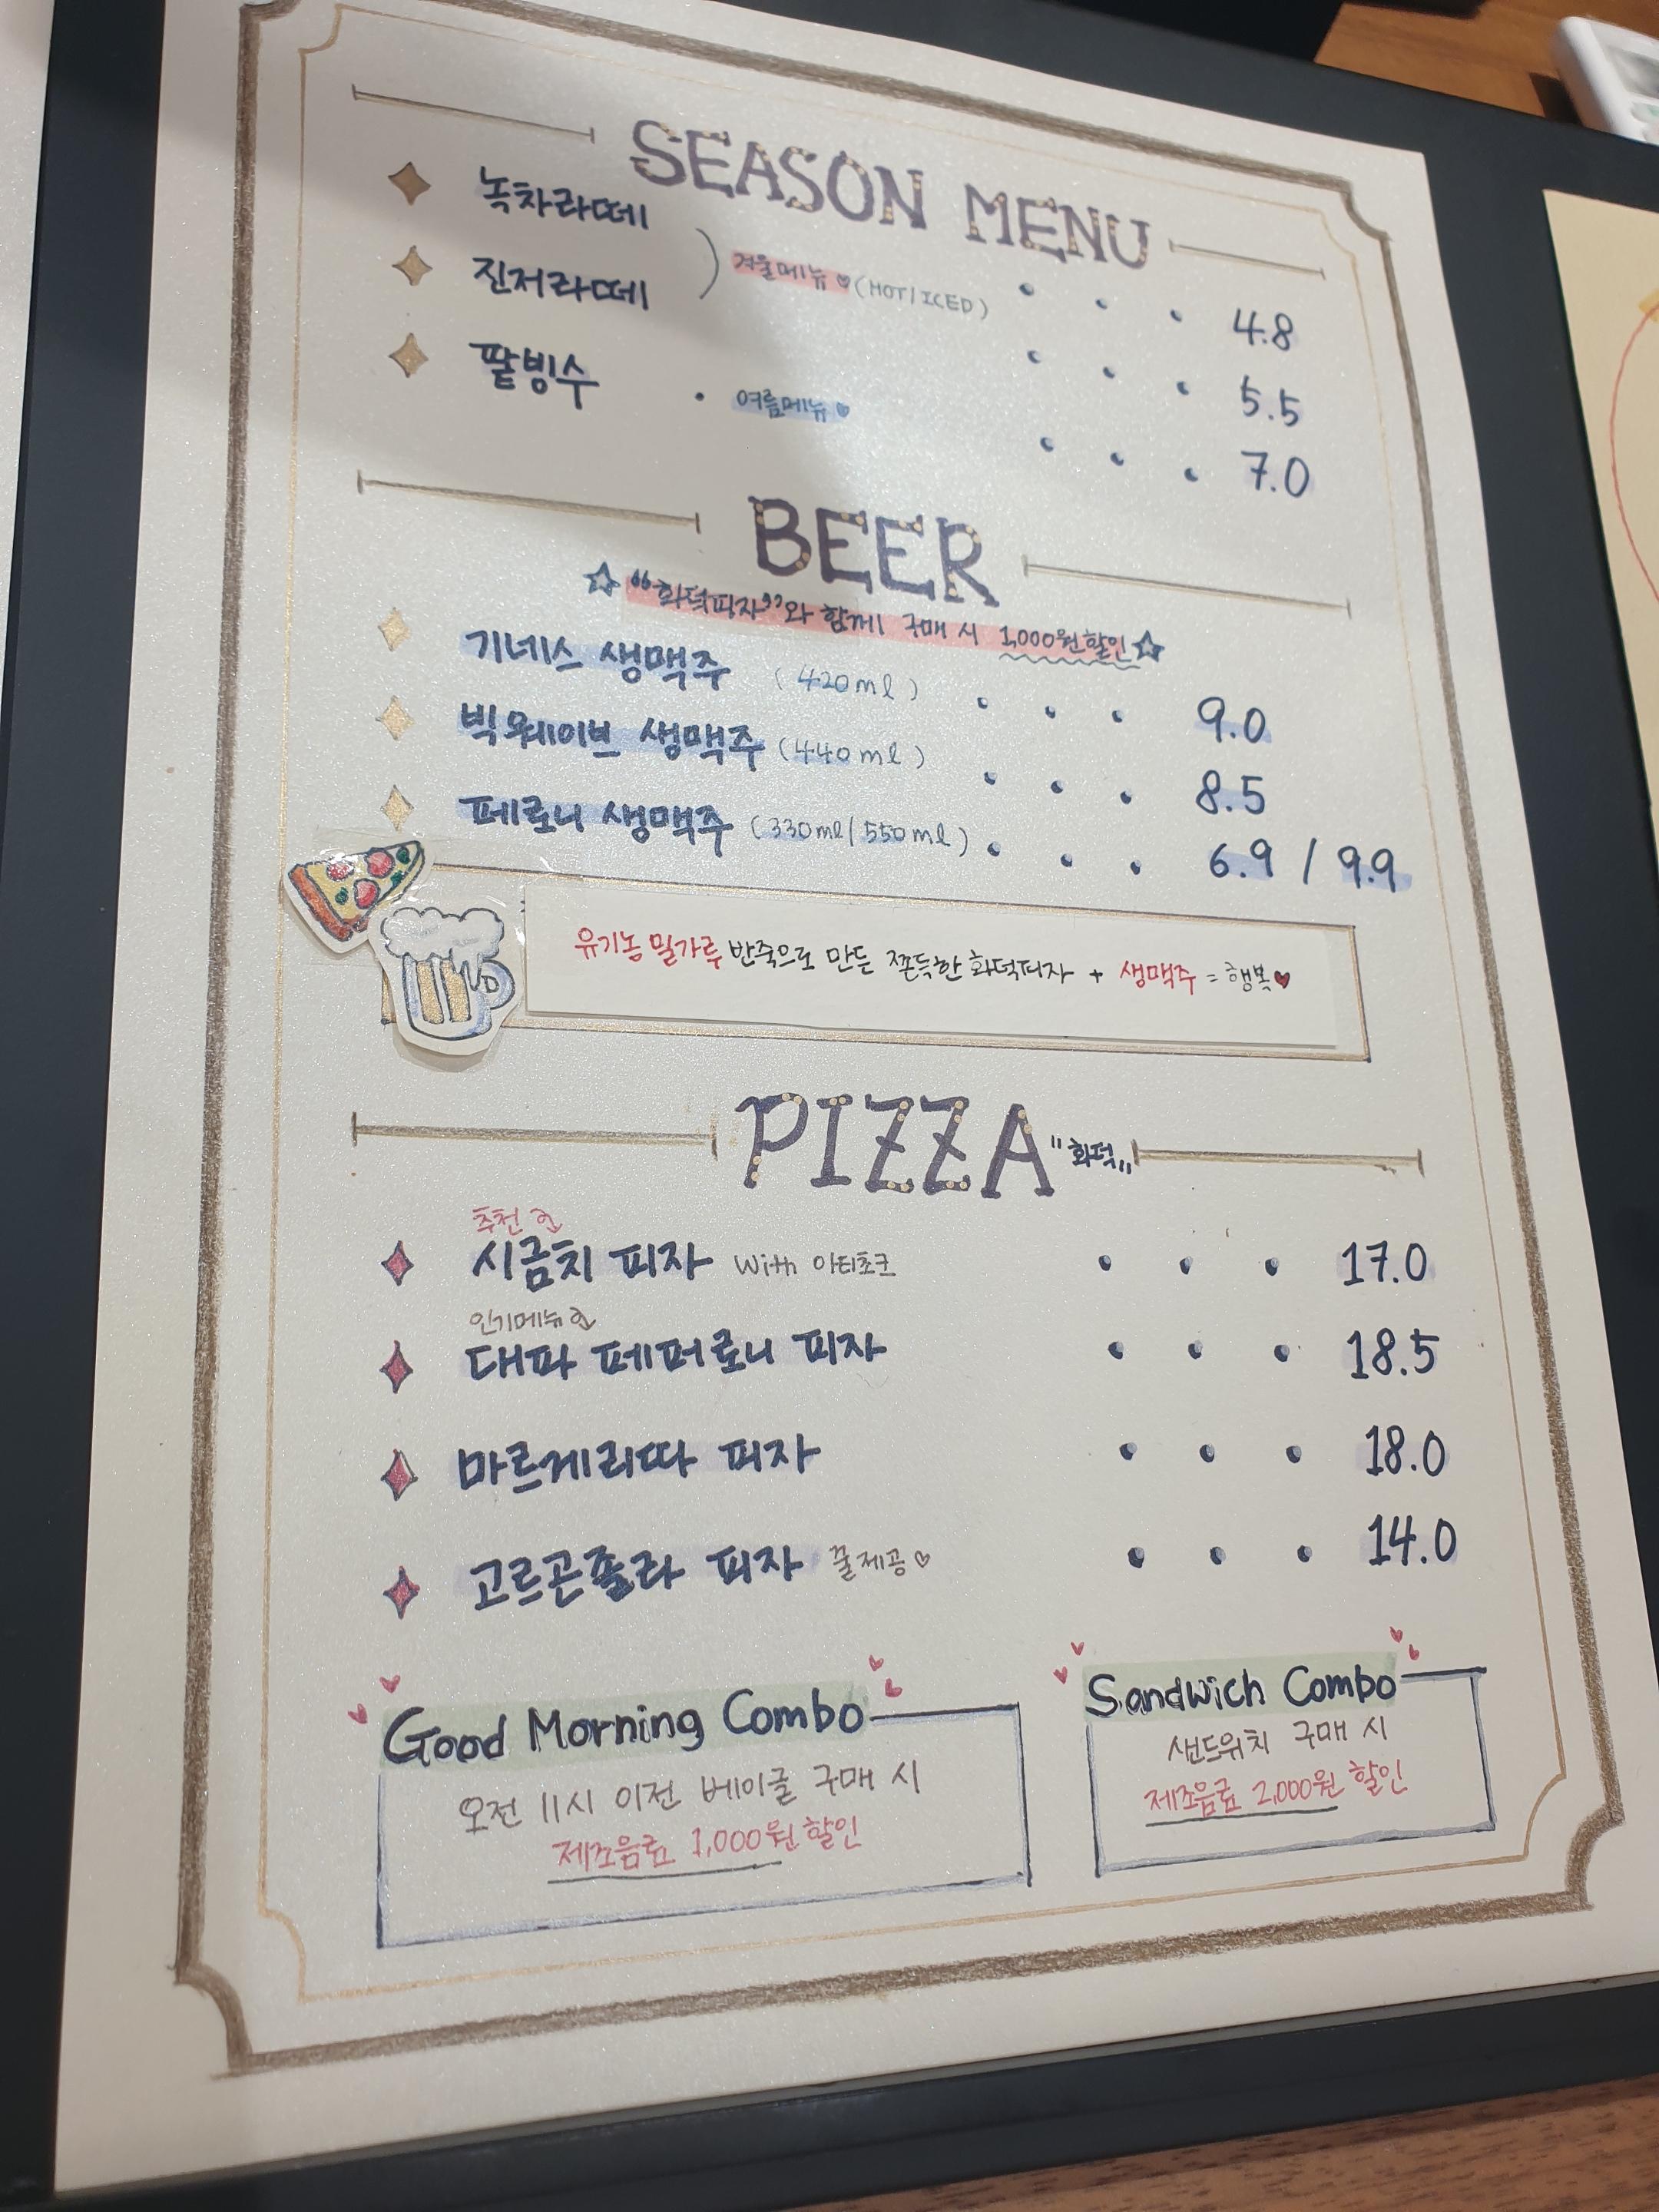 SEASON MENU
녹차라떼 4.8
진저라떼 겨울메뉴 (HOT/ICED) 5.5
팥빙수 여름메뉴 7.0
BEER
"화덕피자"와 함께 구매 시 1,000원 할인
기네스 생맥주 (420ml) 9.0
빅웨이브 생맥주 (440ml) 8.5
페로니 생맥주 (330ml/550ml) 6.9 / 9.9
유기농 밀가루 반죽으로 만든 쫀득한 화덕피자 + 생맥주 = 행복
PIZZA "화덕"
추천
시금치 피자 With 아티초크 17.0
인기메뉴
대파 페퍼로니 피자 18.5
마르게리따 피자 18.0
고르곤졸라 피자 꿀제공 14.0
Good Morning Combo
오전 11시 이전 베이글 구매 시
제조음료 1,000원 할인
Sandwich Combo
샌드위치 구매 시
제조음료 2,000원 할인